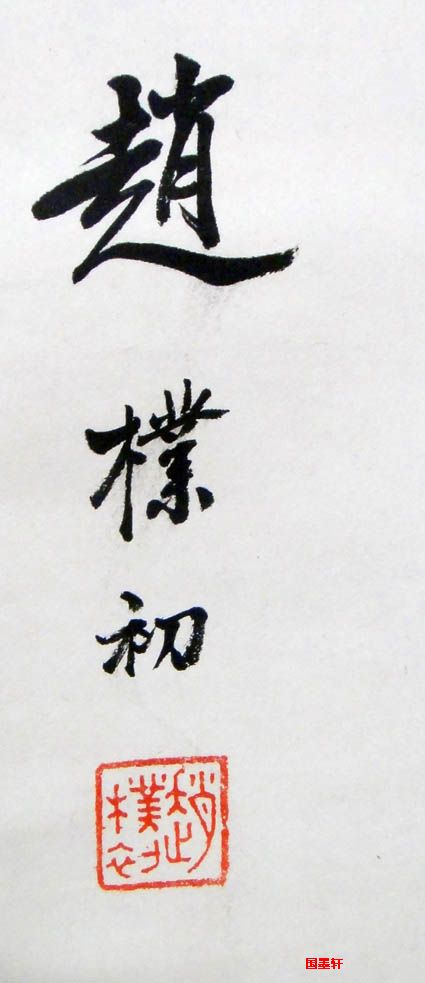 趙樸初
趙樸初
国墨轩